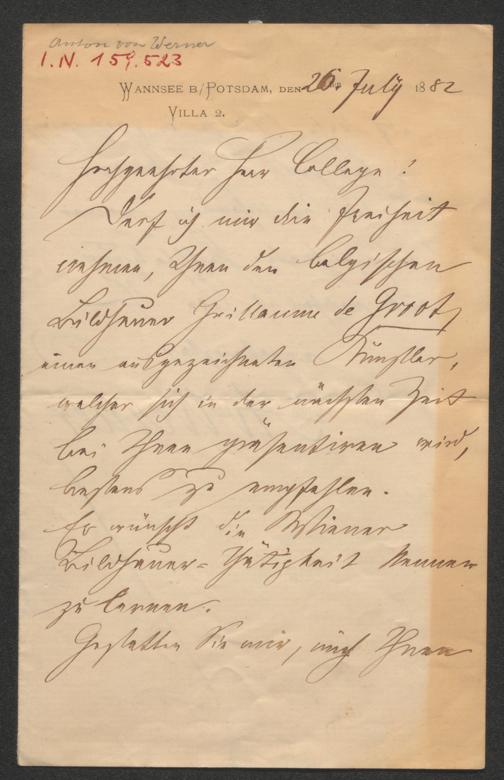 Anton von Werner
I.N. 159.523
WANNSEE B/POTSDAM, DEN 26 July 1882
VILLA 2.
Hochgeehrter Herr College!
Darf ich mir die Freiheit
nehmen, Ihnen den belgischen
Bildhauer Guillaume de Groot,
einen ausgezeichneten Künstler,
welcher sich in der nächsten Zeit
bei Ihnen präsentiren wird,
bestens zu empfehlen.
Er wünscht die Wiener
Bildhauer=Thätigkeit kennen
zu lernen.
Gestatten Sie mir, mich Ihnen